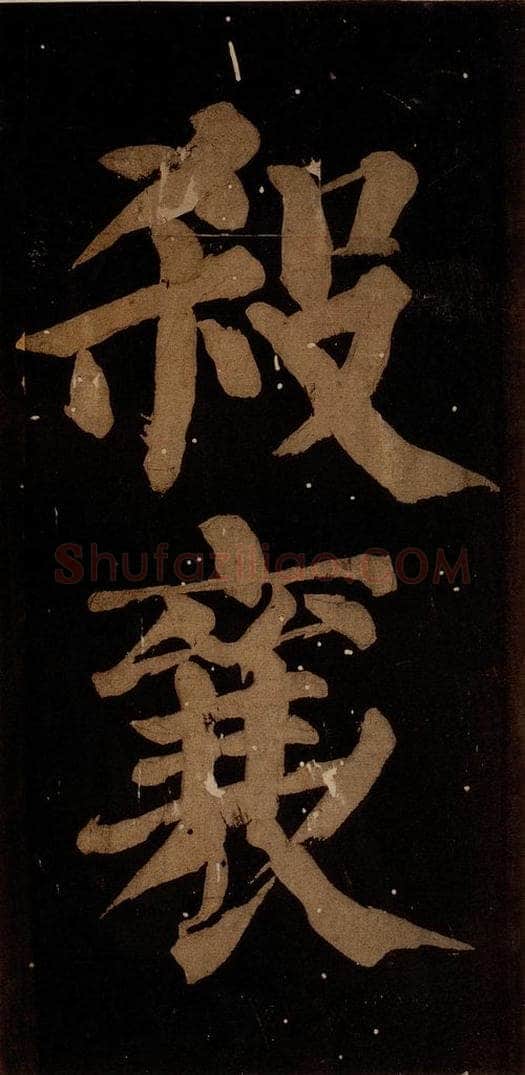 殺
襄
Shufaziliao.COM